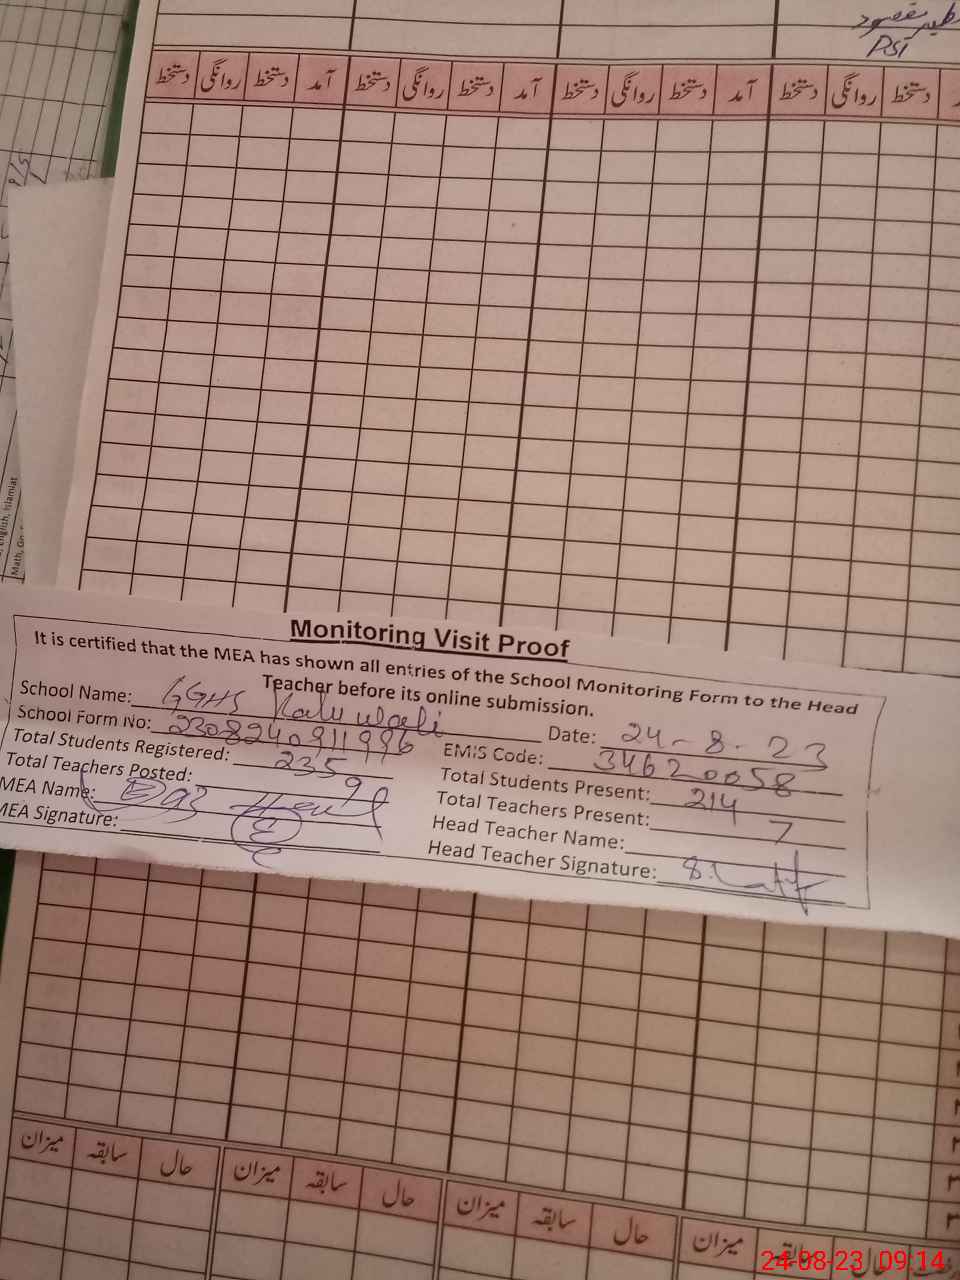 PST
دستخط روانگی دستخط آمد دستخط روانگی دستخط آمد دستخط روانگی دستخط آمد دستخط روانگی دستخط
Math, Ge
, English, Islamiat
Monitoring Visit Proof
It is certified that the MEA has shown all entries of the School Monitoring Form to the Head
Teacher before its online submission.
School Name: GGHS Kalu wali Date: 24-8-23
School Form No: 2308240911996 EMIS Code: 34620058
Total Students Registered: 235 Total Students Present: 214
Total Teachers Posted: 9 Total Teachers Present: 7
MEA Name: Head Teacher Name:
MEA Signature: Head Teacher Signature: S. Latif
میزان سابقہ حال میزان سابقہ حال میزان سابقہ حال میزان سابقہ حال
24-08-23 09:14